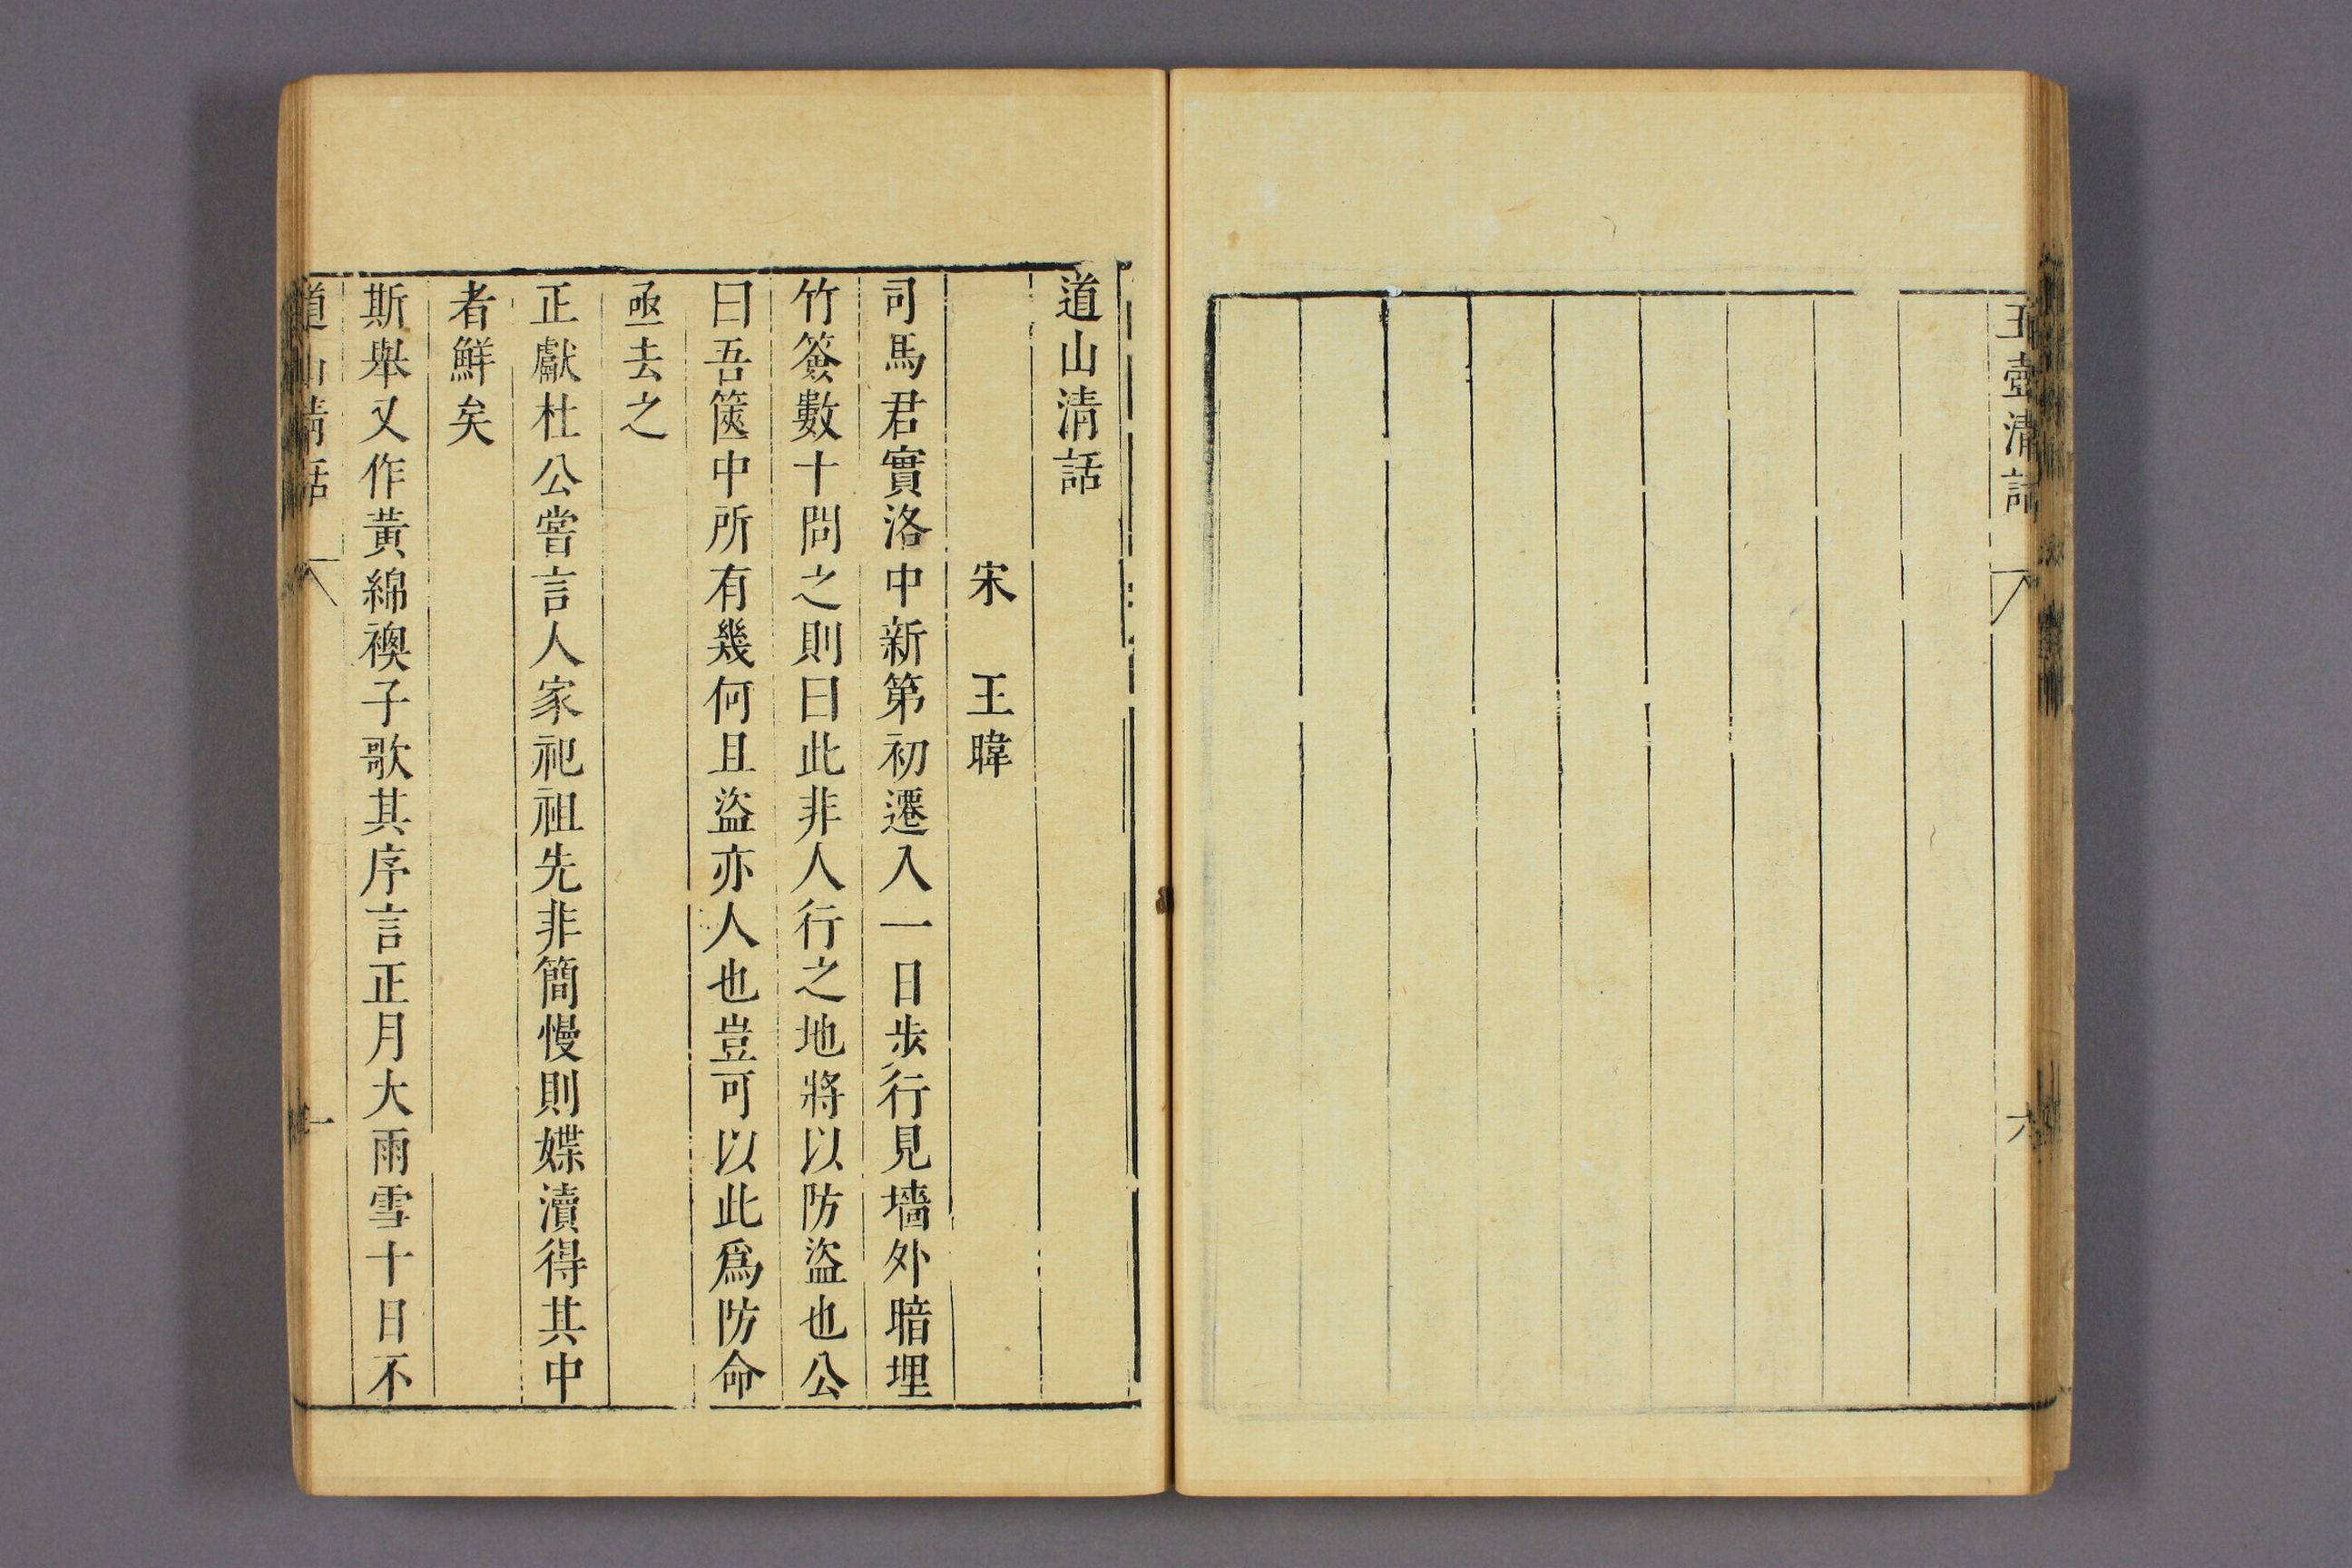 玉壺清話
六
道山清話
宋 王暐
司馬君實洛中新第初遷入一日步行見墻外暗埋
竹簽數十問之則曰此非人行之地將以防盜也公
曰吾篋中所有幾何且盜亦人也豈可以此爲防命
亟去之
正獻杜公嘗言人家祀祖先非簡慢則媟瀆得其中
者鮮矣
斯舉又作黃綿襖子歌其序言正月大雨雪十日不
道山清話
一